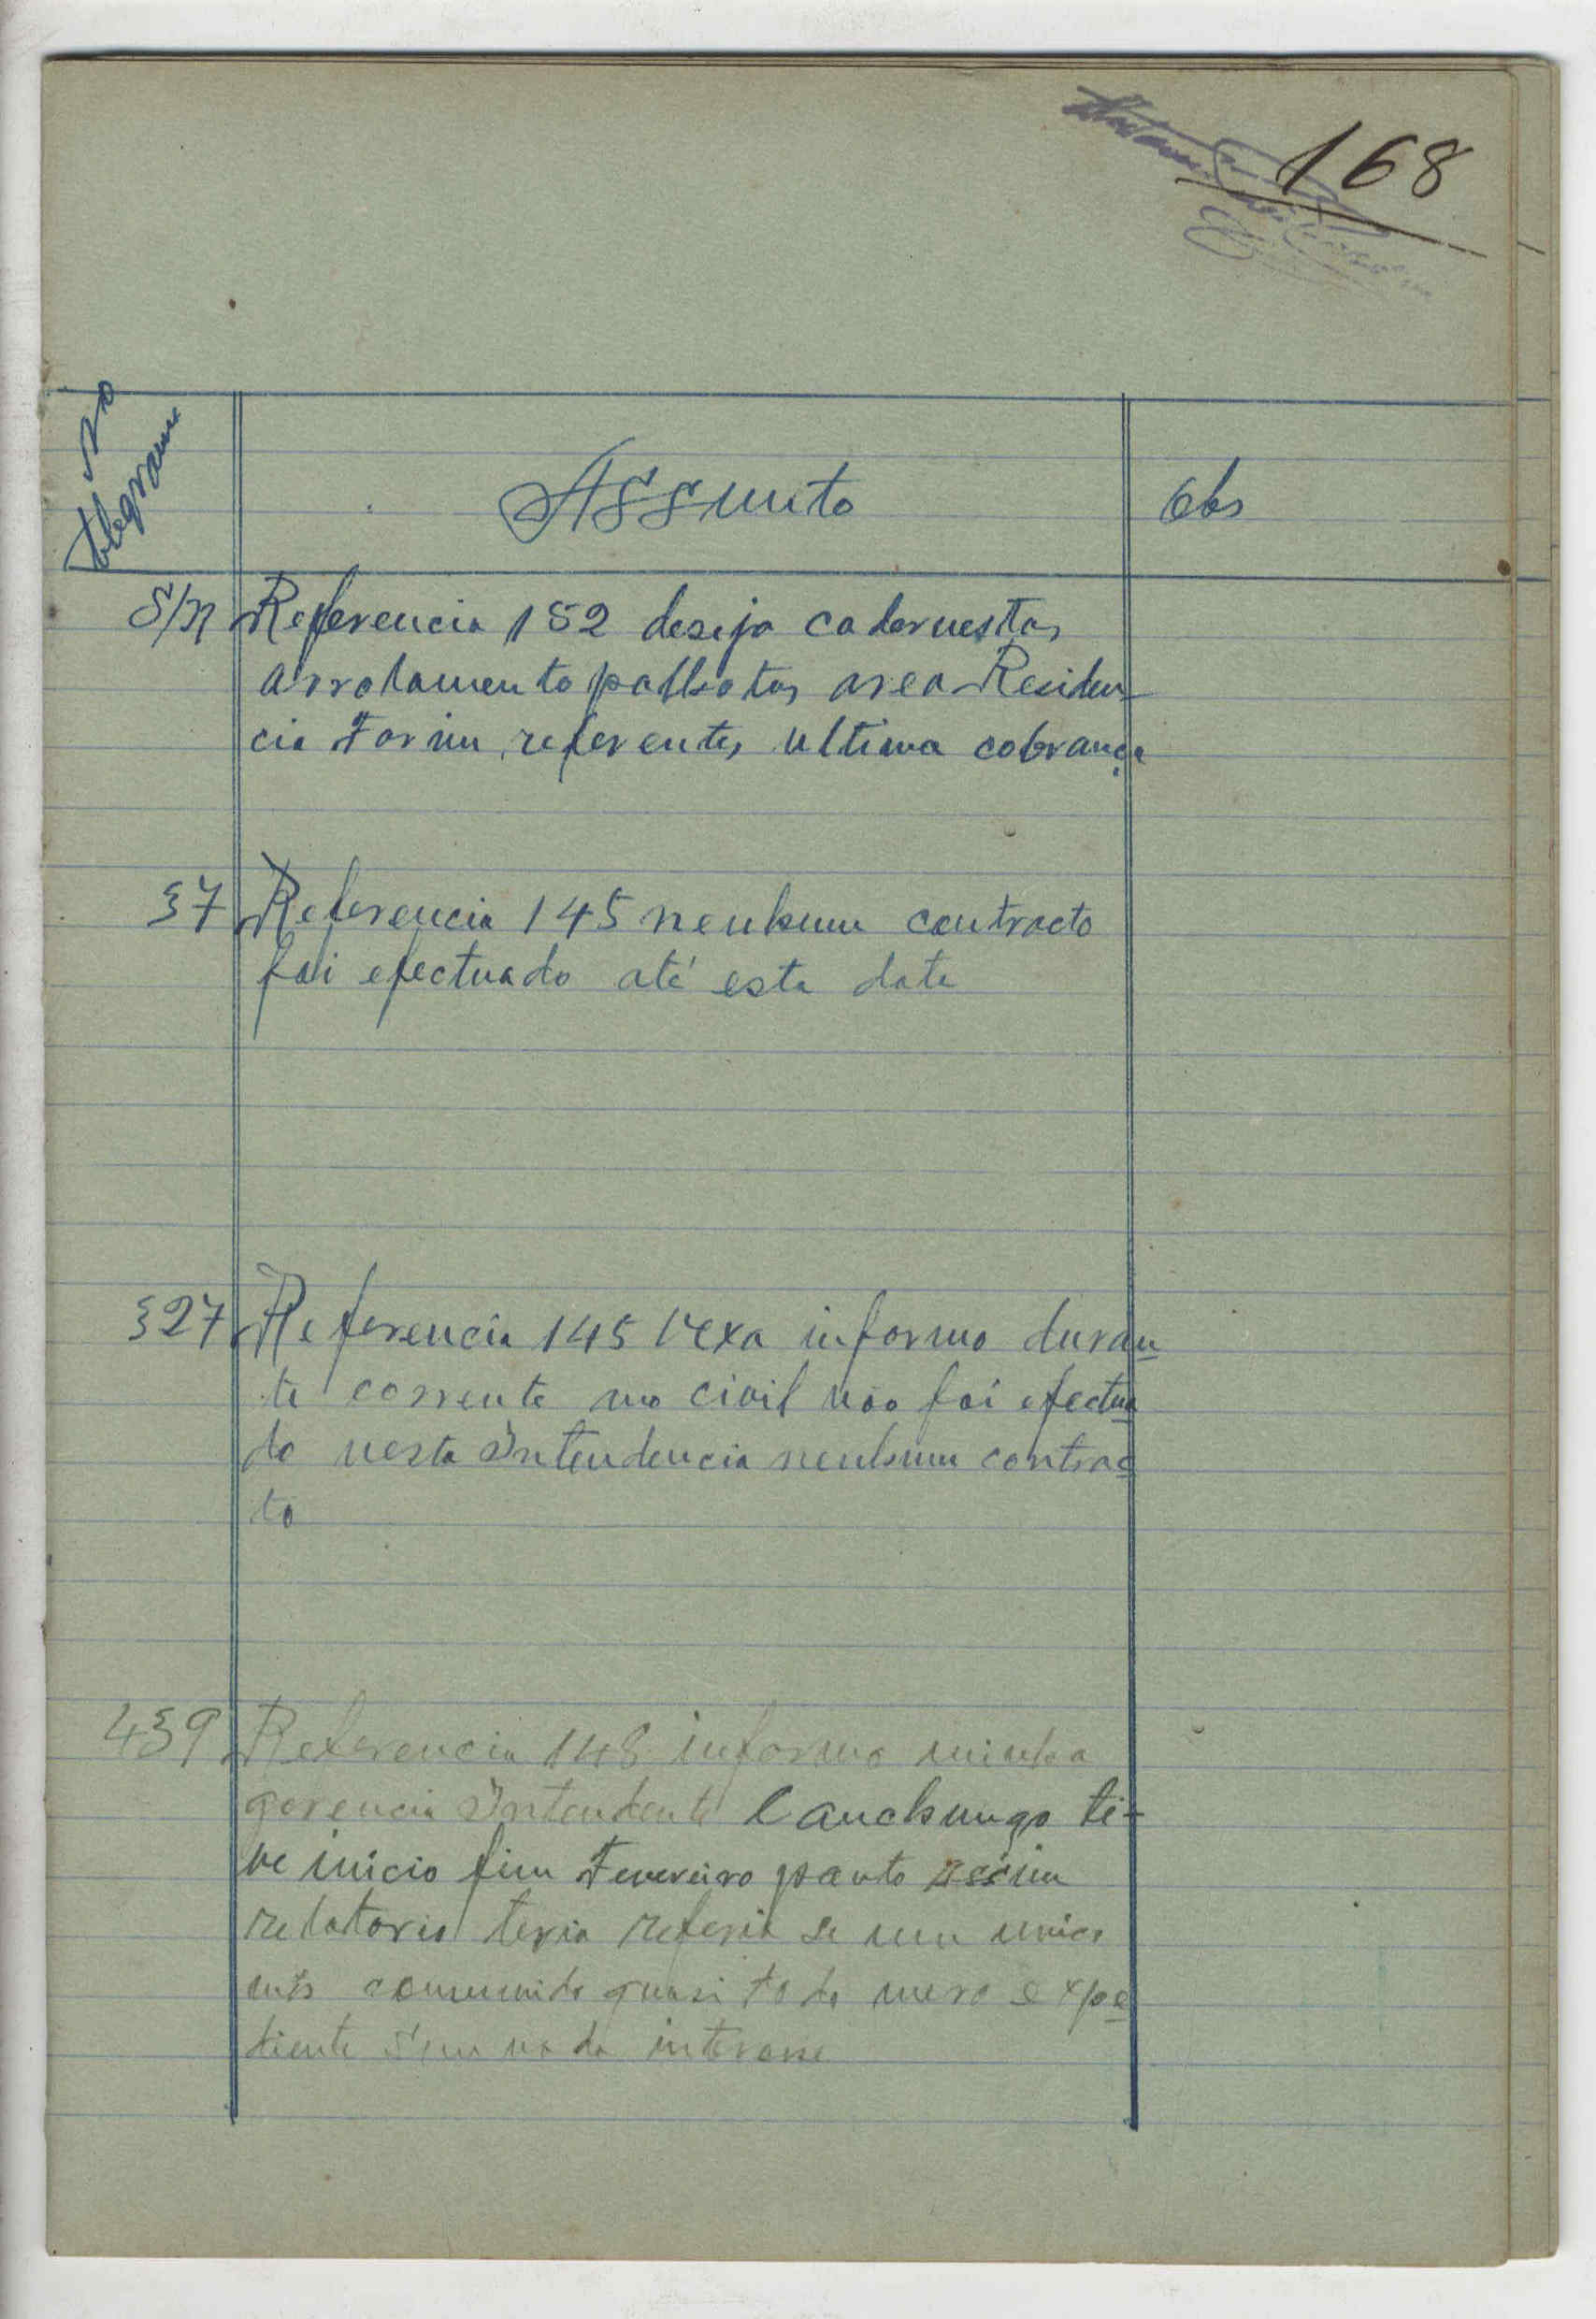 168
No
telegrama
Assunto
Obs
S/N Referencia 152 deseja cadernestas
arrolamento palhotas area Residen-
cia Farim referentes ultima cobrança
37 Referencia 145 nenhum contracto
foi efectuado até esta data
327 Referencia 145 Vexa informo duran
te corrente ano civil não foi efectua
do nesta Intendencia nenhum contrac
to
439 Referencia 148 informo minha
gerencia Intendente Canchungo ti-
ve inicio fim Fevereiro pauto assim
relatorio teria referir se um unico
mês comunido quasi todo mero expe
diente sem nada interesse